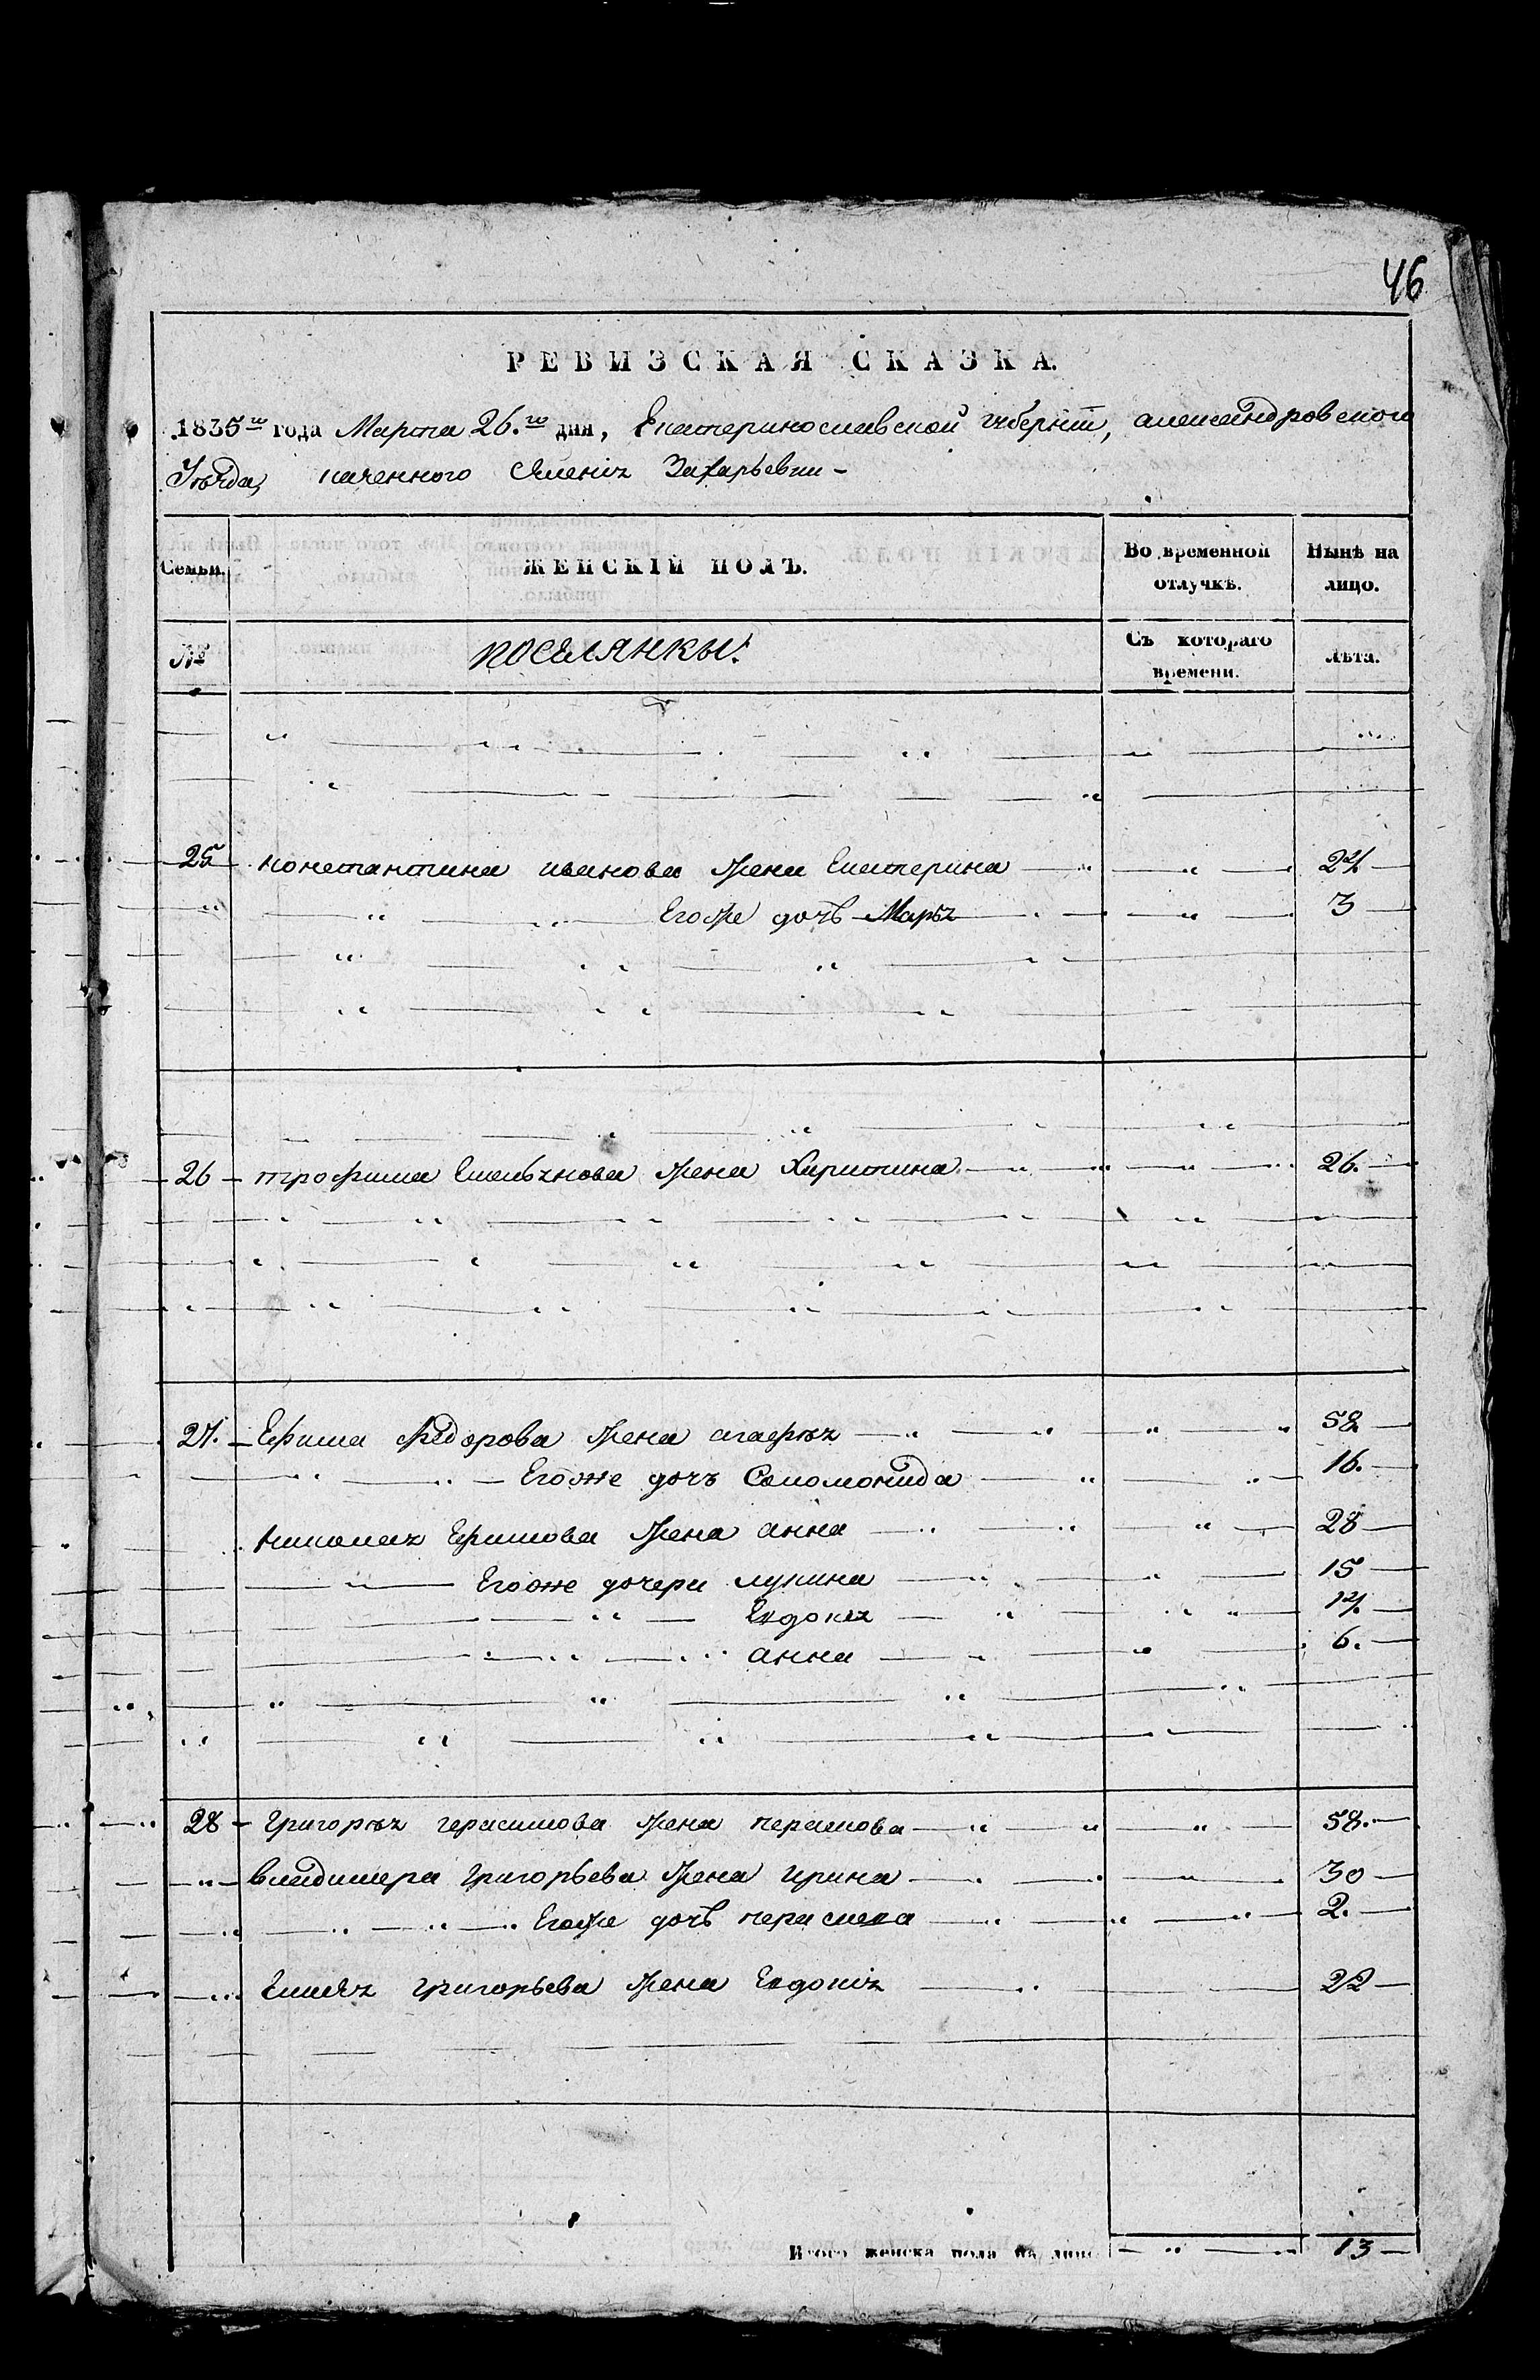 46
РЕВИЗСКАЯ СКАЗКА.
1835го года Марта 26.го дня, Екатеринославской губернiи, александровского
Уѣзда, Имениz Захарьевки
Семьи. ЖЕНСКIЙ ПОЛЪ. Во временной отлучкѣ. Нынѣ на лицо.
№ поселянкы: Съ котораго времени. Лѣта.
25 константина иванова жена Екатерина 24
Егоже дочь Марьz 3
26 трофима Емельzнова жена Христина 26.
27. Ефима Федорова жена агафьz 58
Егоже дочъ Соломонида 16.
николаz Ефимова жена анна 28
Егоже дочери лукина 15
Евдокиz 14.
анна 6.
28 Григорьz герасимова жена 58.
владимера григорьева жена ирина 30
Егоже дочь параскева 2.
григорьева жена Евдокиz 22
Итого женска пола на лицо 13